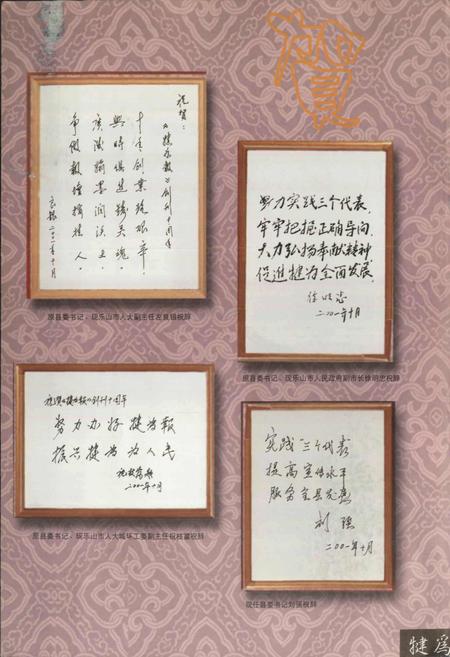 祝贺：
《犍为报》创刊十周年
十年创业路艰辛
與時俱進鑄英魂
翰墨潤沃土
二〇〇一年十月
原县委书记、现乐山市人大副主任左良 祝辞
努力实践三个代表，
牢牢把握正确导向，
大力弘扬奉献精神，
促进犍为全面发展。
徐明忠
二〇〇一年十月
原县委书记、现乐山市人民政府副市长徐明忠祝辞
祝贺《犍为报》创刊十周年
努力办好犍为报
振兴犍为为人民
二〇〇一年十月
原县委书记、现乐山市人大城环工委副主任祝枝富祝辞
实践“三个代表”
提高宣传水平
服务全县发展
刘强
二〇〇一年十月
现任县委书记刘强祝辞
犍爲